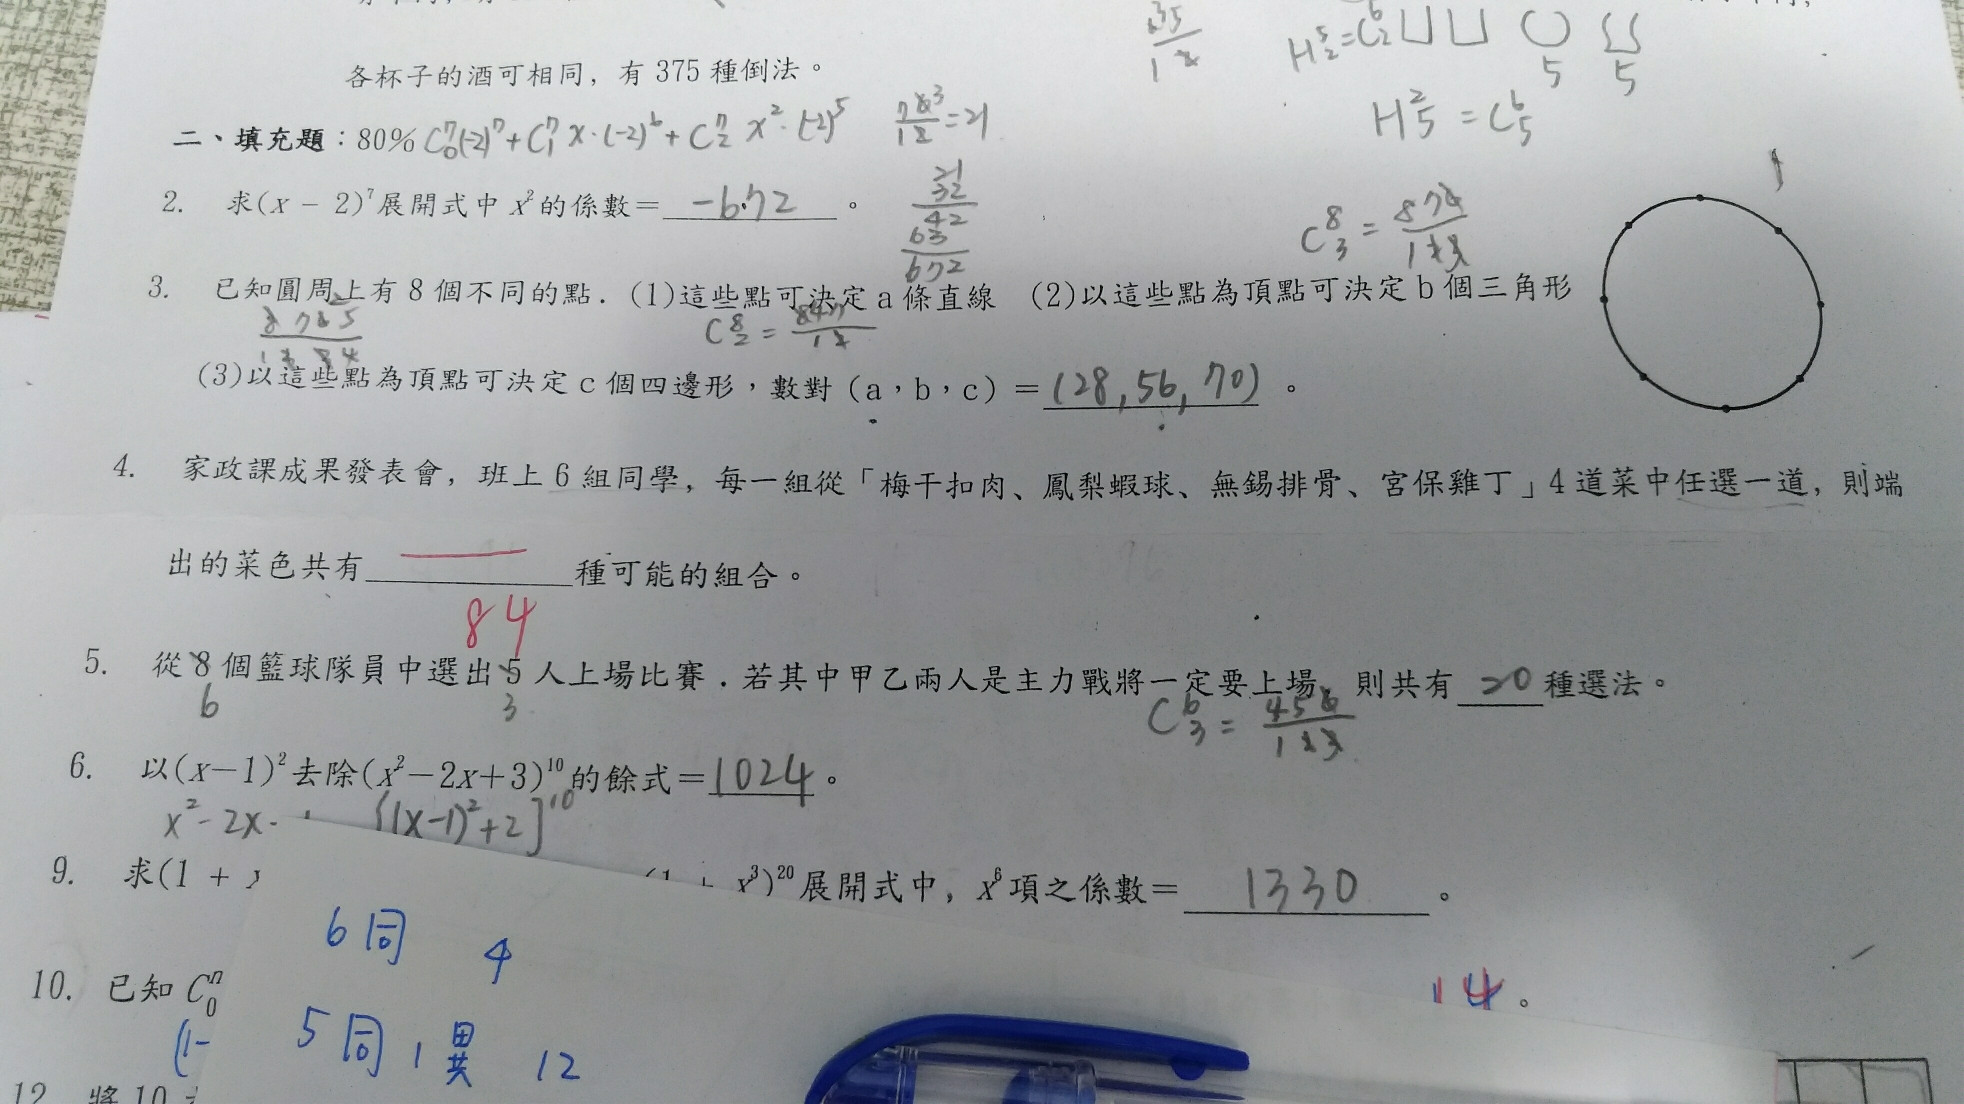 各杯子的酒可相同，有 375 種倒法。
35
1 2
H⁵₂=C⁶₂
5 5
H²₅ = C⁶₅
二、填充題：80% C⁷₀(-2)⁷+C⁷₁ x·(-2)⁶+C⁷₂ x²·(-2)⁵
7 6 3
1 2 =21
2. 求(x － 2)⁷展開式中 x²的係數＝ -672 。
21
32
42
63
672
C⁸₃ = 8 7 6
1 2 3
3. 已知圓周上有 8 個不同的點．(1)這些點可決定 a 條直線 (2)以這些點為頂點可決定 b 個三角形
8 7 6 5
1 2 3 4
C⁸₂ =
(3)以這些點為頂點可決定 c 個四邊形，數對（a，b，c）＝ (28, 56, 70) 。
4. 家政課成果發表會，班上 6 組同學，每一組從「梅干扣肉、鳳梨蝦球、無錫排骨、宮保雞丁」4 道菜中任選一道，則端
出的菜色共有 種可能的組合。
84
5. 從 8 個籃球隊員中選出 5 人上場比賽．若其中甲乙兩人是主力戰將一定要上場，則共有 20 種選法。
6 3 C⁶₃ = 4 5 6
1 2 3
6. 以(x－1)²去除(x²－2x＋3)¹⁰的餘式＝ 1024 。
x²-2x [(x-1)²+2]¹⁰
9. 求(1 + x³)²⁰展開式中，x⁶項之係數＝ 1330 。
6同 4
10. 已知 Cⁿ₀ 14 。
(1-
5同1異 12
12. 將 10